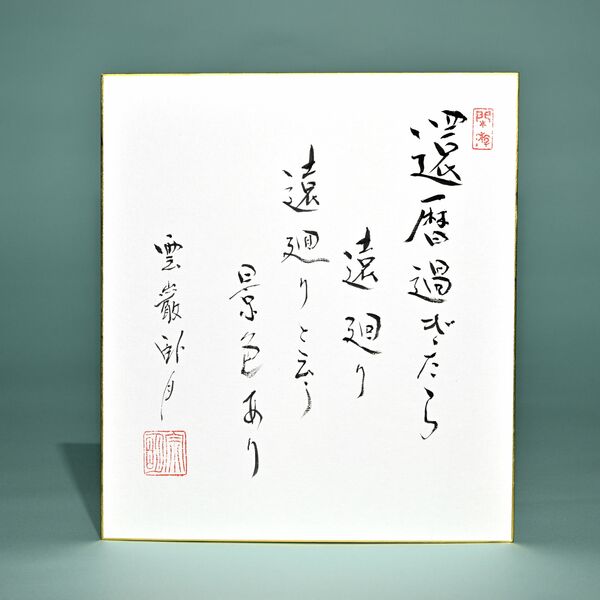 還暦過ぎたら
遠廻り
遠廻りと云う
景色あり
雲巌卧月